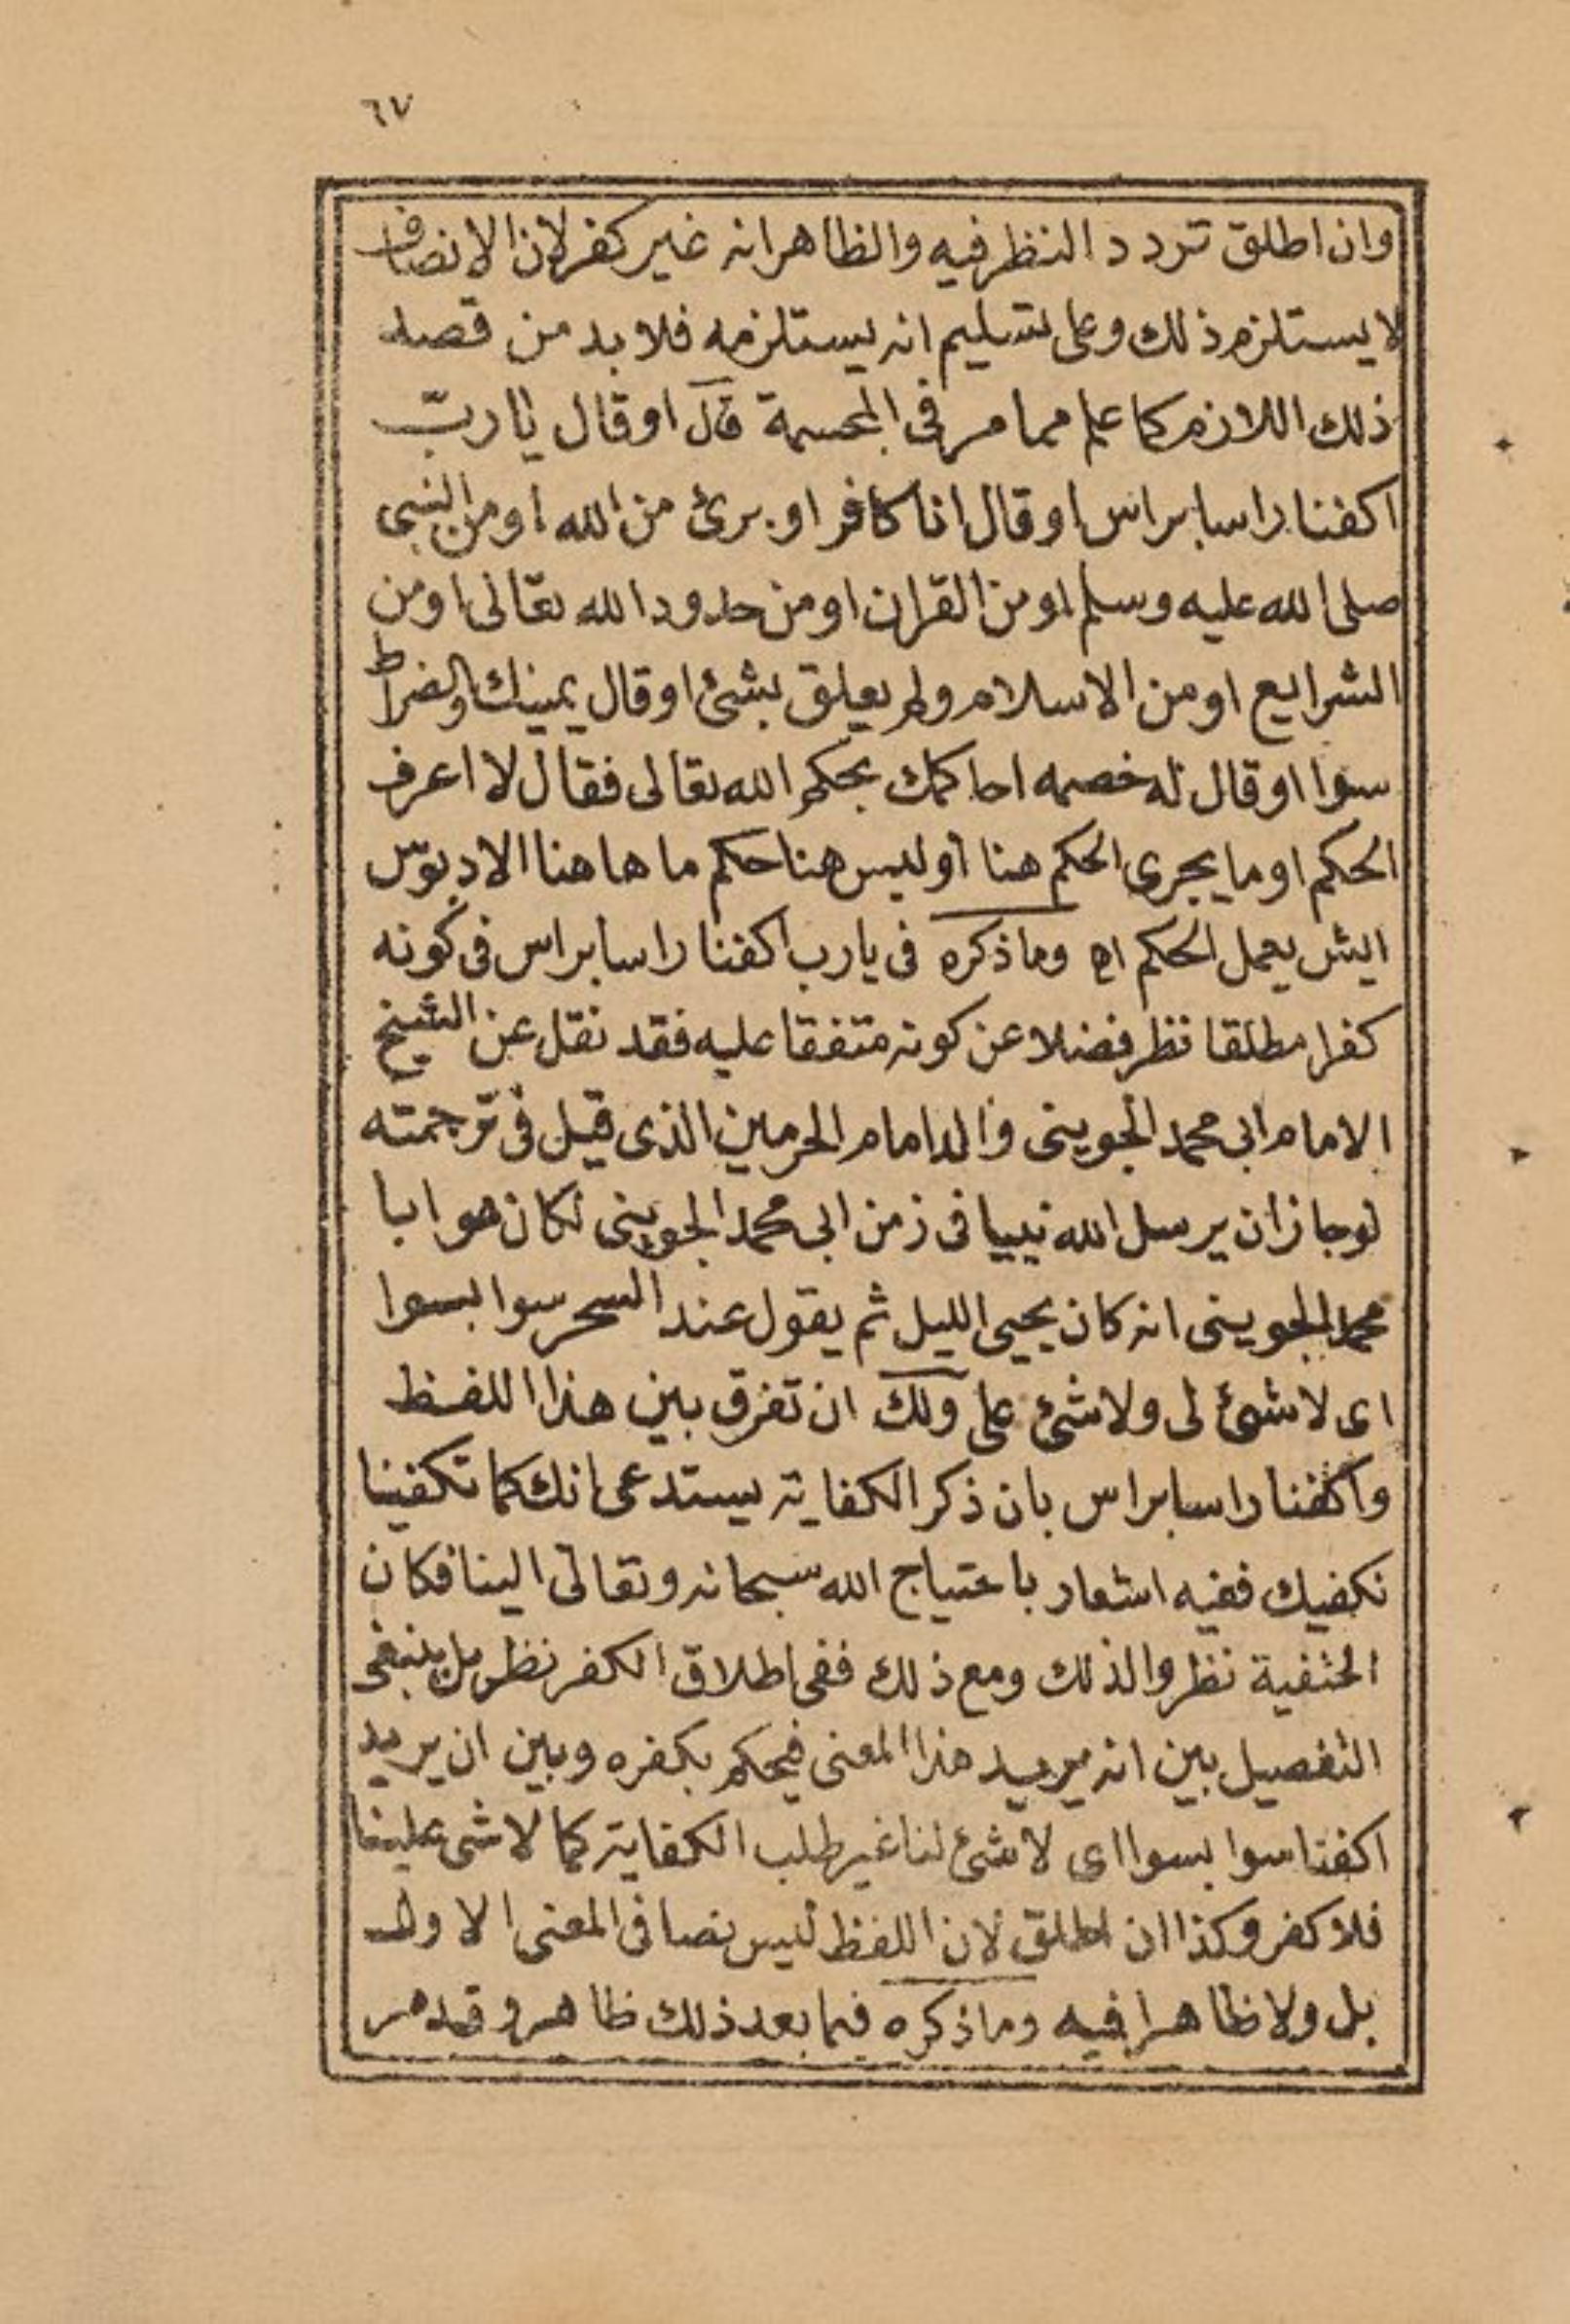 ٦٧
وان اطلق تردد النظر فيه والظاهر انه غير كفر لان الانصاف
لا يستلزم ذلك وعلى تسليم انه يستلزمه فلا بد من قصد
ذلك اللازم كما علم مما مر فى المجسمة قال او قال يا رب
اكفنا راسا براس او قال انا كافر او برئ من الله او من النبى
صلى الله عليه وسلم او من القران او من حدود الله تعالى او من
الشرايع او من الاسلام ولم يعلق بشئ او قال يمينك والضراط
سوا او قال له خصمه احاكمك بحكم الله تعالى فقال لا اعرف
الحكم او ما يجرى الحكم هنا او ليس هنا حكم ما هاهنا الا دبوس
ايش يعمل الحكم اه وما ذكره فى يا رب اكفنا راسا براس فى كونه
كفرا مطلقا نظر فضلا عن كونه متفقا عليه فقد نقل عن الشيخ
الامام ابى محمد الجوينى والد امام الحرمين الذى قيل فى ترجمته
لو جاز ان يرسل الله نبيا فى زمن ابى محمد الجوينى لكان هو ابا
محمد الجوينى انه كان يحيى الليل ثم يقول عند السحر سوا بسوا
اى لا شئ لى ولا شئ على ولك ان تفرق بين هذا اللفظ
واكفنا راسا براس بان ذكر الكفاية يستدعى انك كما تكفينا
نكفيك ففيه اشعار باحتياج الله سبحانه وتعالى الينا فكان
الحنفية نظروا لذلك ومع ذلك ففى اطلاق الكفر نظر بل ينبغى
التفصيل بين انه يريد هذا المعنى فيحكم بكفره وبين ان يريد
اكفنا سوا بسوا اى لا شئ لنا غير طلب الكفاية كما لا شى علينا
فلا كفر وكذا ان اطلق لان اللفظ ليس نصا فى المعنى الاول
بل ولا ظاهرا فيه وما ذكره فيما بعد ذلك ظاهر وقد مر